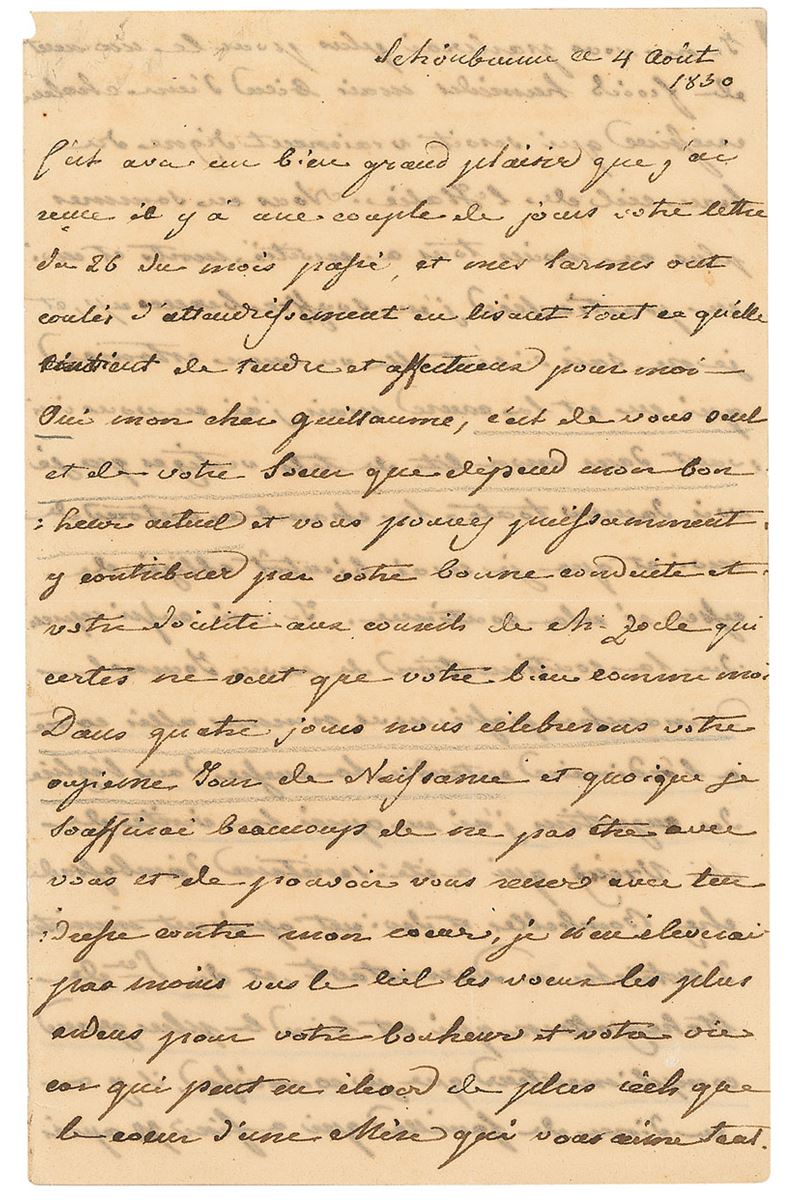 Schönbrunn ce 4 Août
1830
C'est avec un bien grand plaisir que j'ai
reçue il y à une couple de jours votre lettre
du 26 du mois passé, et mes larmes ont
coulés d'attendrissement en lisant tout ce qu'elle
contient de tendre et affectueux pour moi —
Oui mon cher Guillaume, c'est de vous seul
et de votre Soeur que dépend mon bon
: heur actuel et vous pouvez puissamment
y contribuer par votre bonne conduite et
votre docilité aux conseils de Mr. Zode qui
certes ne veut que votre bien comme moi
Dans quatre jours nous célébrerons votre
onzieme Jour de Naissance et quoique je
Souffrirai beaucoup de ne pas être avec
vous et de pouvoir vous serrer avec ten
: dresse contre mon coeur, je n'en éleverai
pas moins vers le Ciel les voeux les plus
ardens pour votre bonheur et votre vie
car qui peut en élever de plus réels que
le coeur d'une Mère qui vous aime tant.